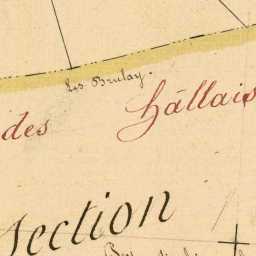 Les Brulay.
des Hâllais
Section